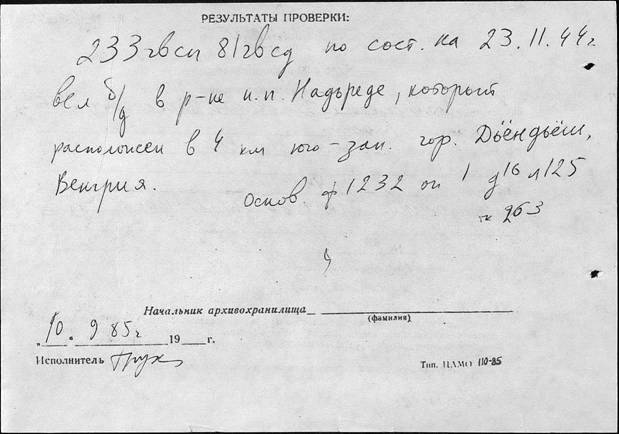 РЕЗУЛЬТАТЫ ПРОВЕРКИ:
233 гвсп 81 гвсд по сост. на 23.11.44г.
вел б/д в р-не н.п. Надьреде, который
расположен в 4 км юго-зап. гор. Дьёндьёш,
Венгрия.
Основ. ф 1232 оп 1 д 16 л 125
Начальник архивохранилища
(фамилия)
"10. 9 85г 19 г.
Исполнитель
Тип. ЦАМО 110-85